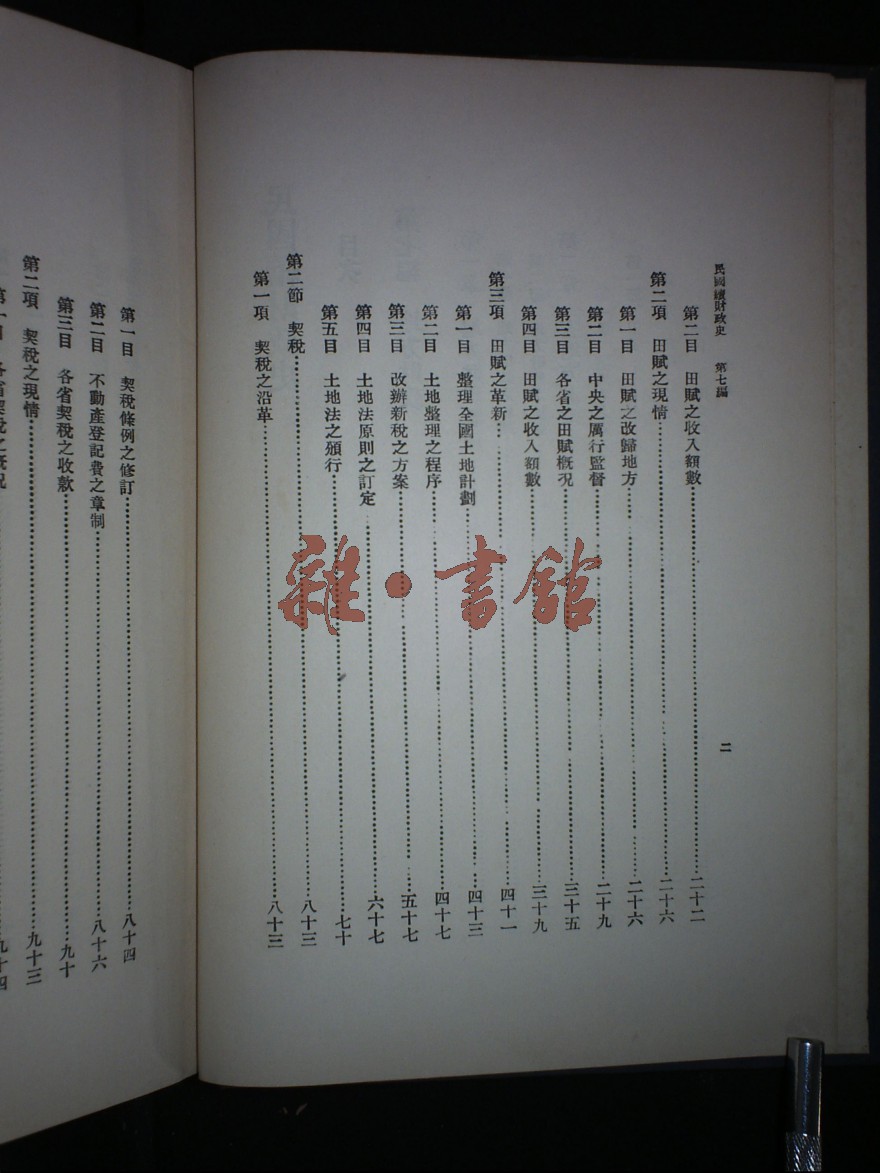 民國續財政史　第七編
二
第二目　田賦之收入額數……二十二
第二項　田賦之現情……二十六
第一目　田賦之改歸地方……二十六
第二目　中央之厲行監督……二十九
第三目　各省之田賦槪况……三十五
第四目　田賦之收入額數……三十九
第三項　田賦之革新……四十一
第一目　整理全國土地計劃……四十三
第二目　土地整理之程序……四十七
第三目　改辦新稅之方案……五十七
第四目　土地法原則之訂定……六十七
第五目　土地法之頒行……七十
第二節　契稅……八十三
第一項　契稅之沿革……八十三
第一目　契稅條例之修訂……八十四
第二目　不動產登記費之章制……八十六
第三目　各省契稅之收款……九十
第二項　契稅之現情……九十三
第一目　各省契稅之槪况……九十四
雜·書館